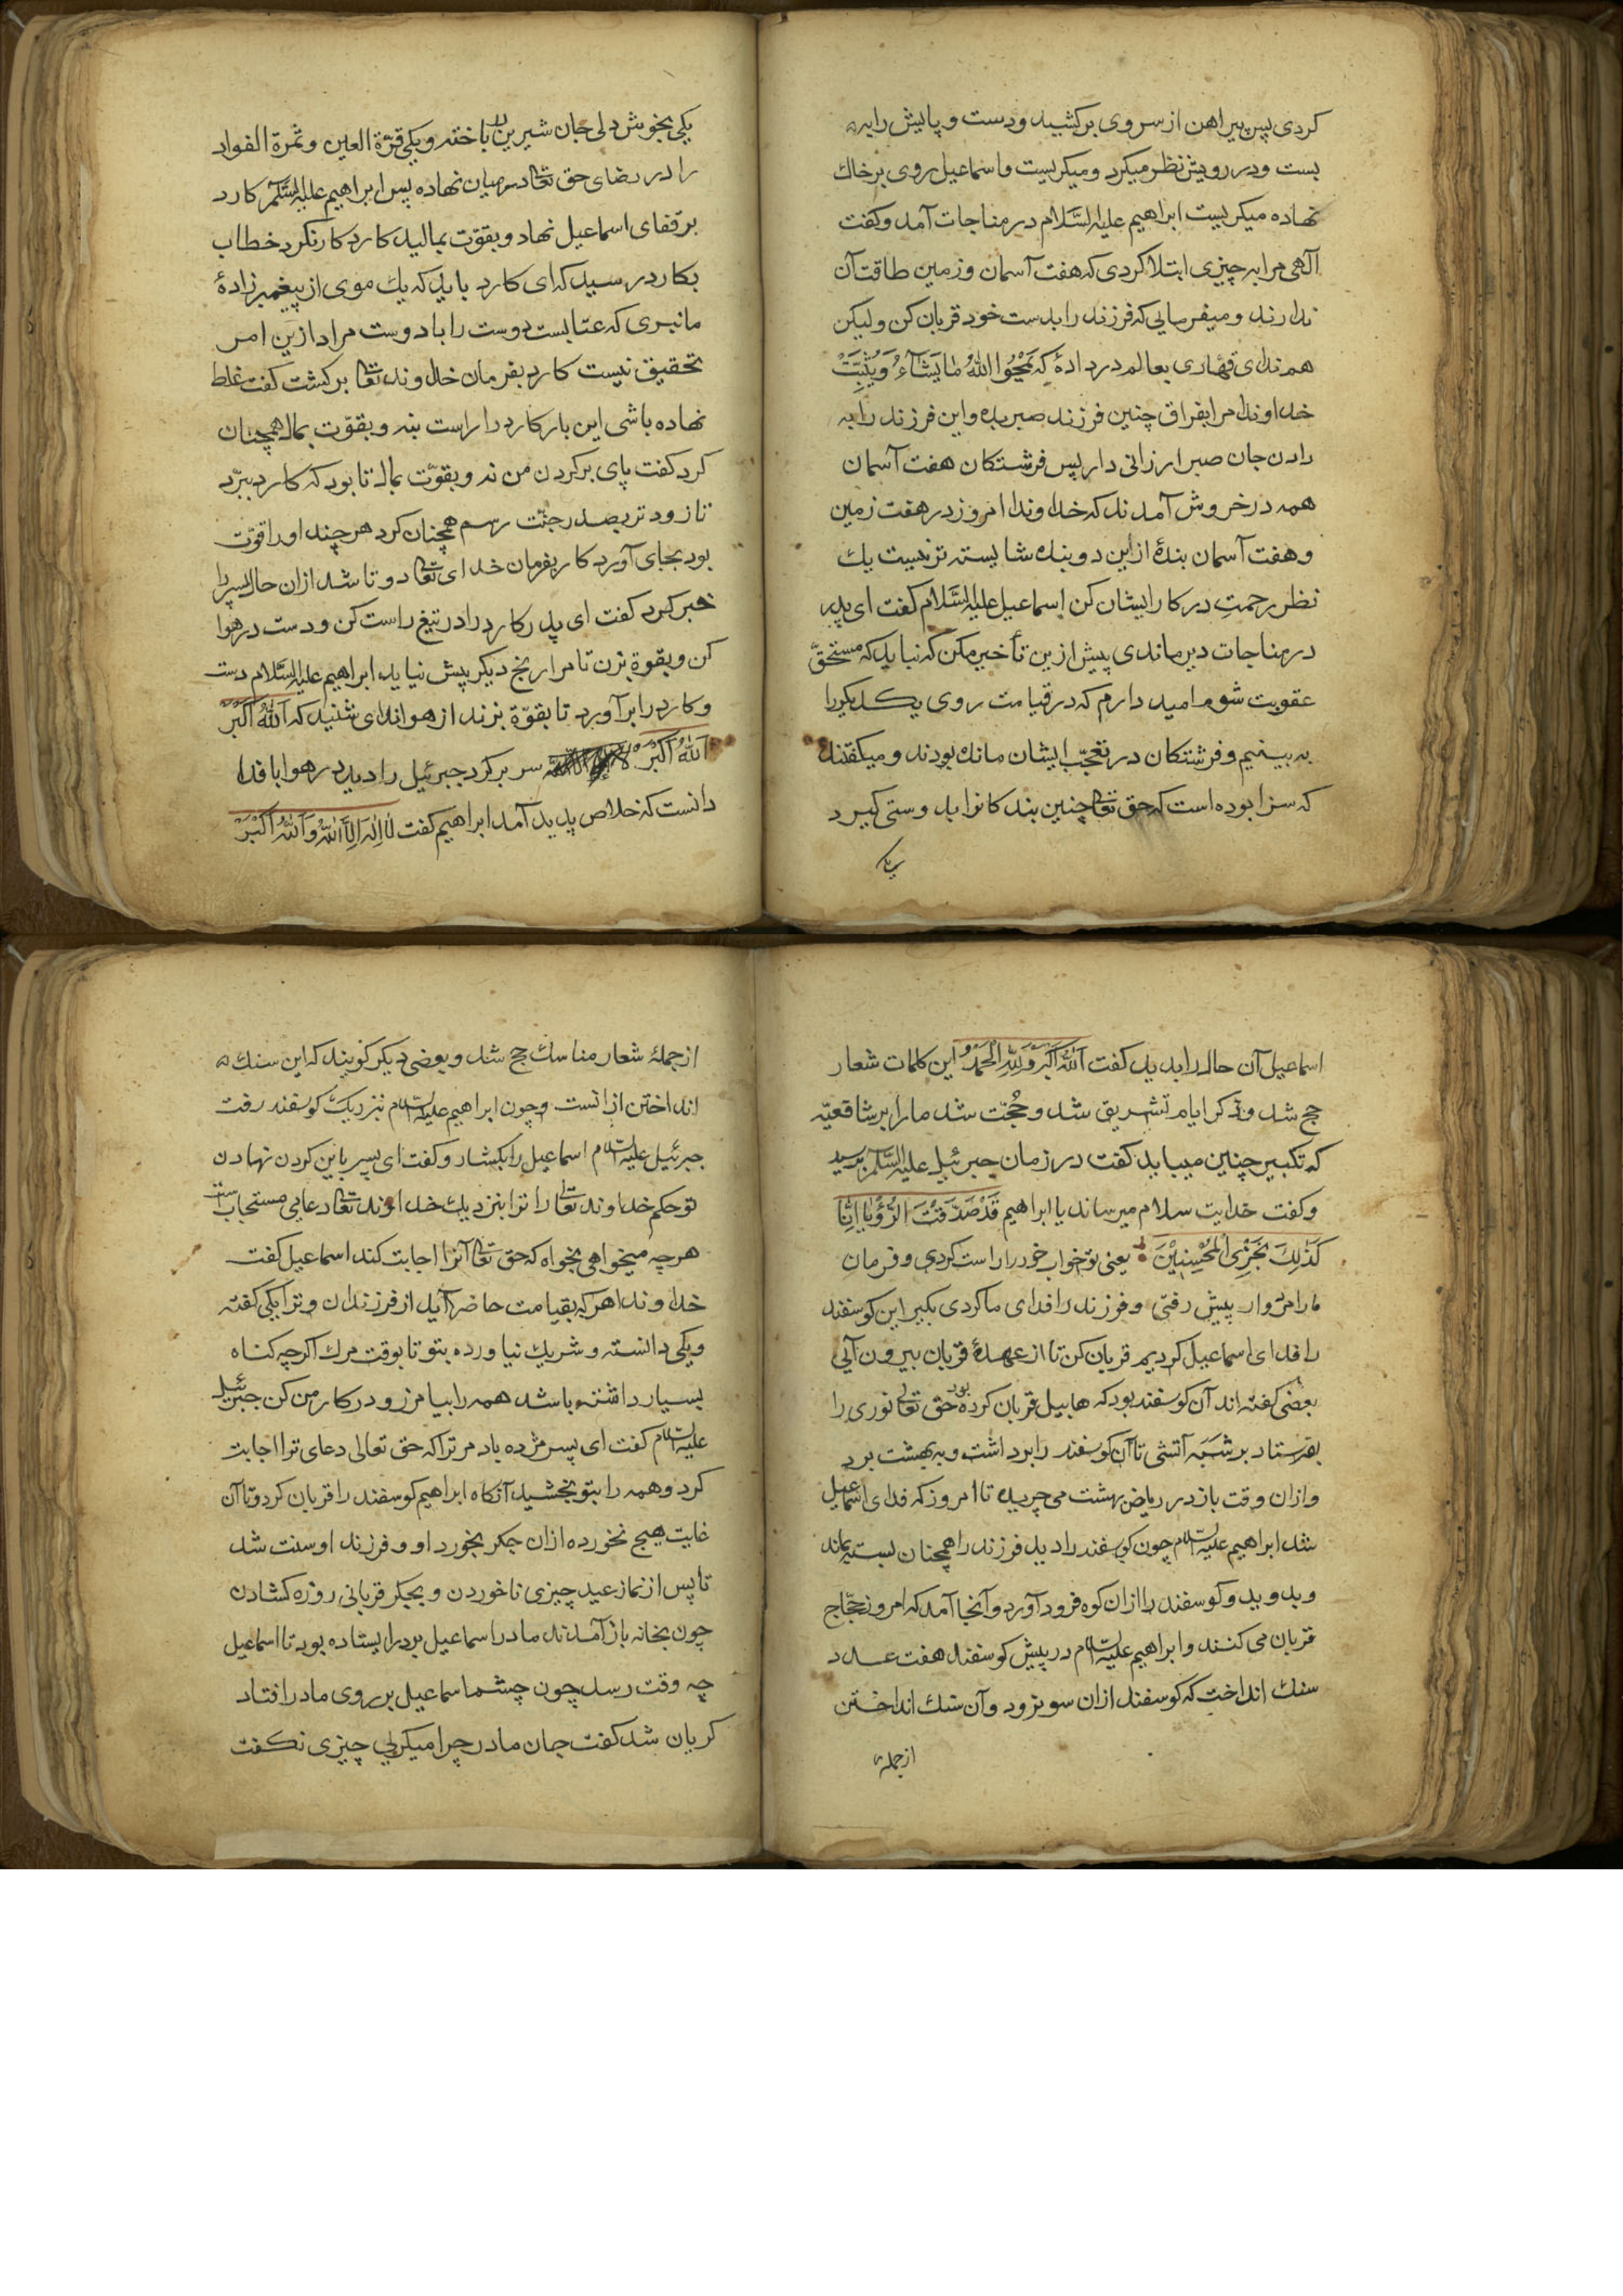 کردی پس پیراهن از سر وی برکشید و دست و پایش را به
بست و در رویش نظر میکرد و میکریست و اسماعیل روی بر خاك
نهاده میکریست ابراهیم علیه السَّلام در مناجات آمد و کفت
آلهی مرا به چیزی ابتلا کردی که هفت آسمان و زمین طاقت آن
ندارند و میفرمایی که فرزند را بدست خود قربان کن ولیکن
هم ندای قهّاری بعالم در دادهٔ که یَمْحُوا اللهُ مٰا یَشَآءُ وَیُثْبِتُ
خداوندا مرا بفراق چنین فرزند صبر بده و این فرزند را به
دادن جان صبر ارزانی دار پس فرشتکان هفت آسمان
همه در خروش آمدند که خداوندا امروز در هفت زمین
و هفت آسمان بندهٔ از این دو بنده شایسته تر نیست یك
نظر رحمتِ در کار ایشان کن اسماعیل علیه السَّلام کفت ای پدر
در مناجات دیر ماندی پیش ازین تأخیر مکن که نباید که مستحقّ
عقوبت شوم امید دارم که در قیامت روی یکدیکر را
به بینیم و فرشتکان در تعجّب ایشان مانده بودند و میکفتند
که سزا بوده است که حق تعالی چنین بندکانرا بدوستی کیرد
یکی
یکی بخوش دلی جان شیرین را باخته و یکی قرّة العین و ثمرة الفواد
را در رضای حق تعالی در میان نهاده پس ابراهیم علیه السَّلام کارد
بر قفای اسماعیل نهاد و بقوّت بمالید کارد کار نکرد خطاب
بکارد رسید که ای کارد باید که یك موی از پیغمبر زادهٔ
ما نبری که عتابست دوست را با دوست مراد ازین امر
تحقیق نیست کارد بفرمان خداوند تعالی برکشت کفت غلط
نهاده باشی این بار کارد را راست بنه و بقوّت بمال همچنان
کرد کفت پای بر کردن من نه و بقوّت بمال تا بود که کارد ببرّد
تا زودتر بصدر جنّت رسم همچنان کرد هر چند او را قوّت
بود بجای آورد کارد بفرمان خدای تعالی دو تا شد از ان حال پسر را
خبر کرد کفت ای پدر کارد را در تیغ راست کن و دست در هوا
کن و بقوة بزن تا مرا رنج دیکر پیش نیاید ابراهیم علیه السَّلام دست
و کارد را برآورد تا بقوّة بزند از هوا ندای شنید که اَللهُ اَکْبَرْ
اَللهُ اَکْبَرْ سر بر کرد جبرئیل را دید در هوا با فدا
دانست که خلاص پدید آمد ابراهیم کفت لٰا اِلٰهَ اِلَّا اللهُ وَاَللهُ اَکْبَرْ
اسماعیل آن حال را بدید کفت اَللهُ اَکْبَرُ وَلِلّٰهِ الْحَمْدُ و این کلمات شعار
حج شد و ذکر ایام تشریق شد و حُجّت شد ما را بر شافعیّه
که تکبیر چنین میباید کفت در زمان جبرئیل علیه السَّلام برسید
و کفت خدایت سلام میرساند یا ابراهیم قَدْ صَدَّقْتَ الرُّؤْیٰا اِنّٰا
کَذٰلِكَ نَجْزِی الْمُحْسِنِیْنَ یعنی تو خواب خود را راست کردی و فرمان
ما را مردوار پیش رفتی و فرزند را فدای ما کردی بکیر این کوسفند
را فدای اسماعیل کردیم قربان کن تا از عهدهٔ قربان بیرون آیی
بعضی کفته اند آن کوسفند بود که هابیل قربان کرده بود حق تعالی نوری را
بفرستاد بر شبه آتشی تا آن کوسفند را برداشت و به بهشت برد
و ازان وقت باز در ریاض بهشت می چرید تا امروز که فدای اسماعیل
شد ابراهیم علیه السلام چون کوسفند را دید فرزند را همچنان بسته بماند
و بدوید و کوسفند را ازان کوه فرود آورد و آنجا آمد که امروز حجّاج
قربان می کنند و ابراهیم علیه السلام در پیش کوسفند هفت عدد
سنك انداخت که کوسفند ازان سو نرود و آن سنك انداختن
از جملهٔ
از جملهٔ شعار مناسك حج شد و بعضی دیکر کویند که این سنك
انداختن ازانست و چون ابراهیم علیه السلام نزدیك کوسفند رفت
جبرئیل علیه السلام اسماعیل را بکشاد و کفت ای پسر باین کردن نهادن
تو حکم خداوند تعالی را ترا بنزدیك خداوند تعالی دعایی مستجاب است
هر چه میخواهی بخواه که حق تعالی آنرا اجابت کند اسماعیل کفت
خداوندا هر که بقیامت حاضر آید از فرزندان و ترا یکی کفته
و یکی دانسته و شریك نیاورده بتو تا بوقت مرك اکر چه کناه
بسیار داشته باشد همه را بیامرز و در کار من کن جبرئیل
علیه السلام کفت ای پسر مژده باد مر ترا که حق تعالی دعای ترا اجابت
کرد و همه را بتو بخشید آنکاه ابراهیم کوسفند را قربان کرد و تا آن
غایت هیچ نخورده ازان جکر بخورد او و فرزند او سنت شد
تا پس از نماز عید چیزی ناخوردن و بجکر قربانی روزه کشادن
چون بخانه باز آمدند مادر اسماعیل بر در ایستاده بود تا اسماعیل
چه وقت رسد چون چشم اسماعیل بر روی مادر افتاد
کریان شد کفت جان مادر چرا میکریی چیزی نکفت